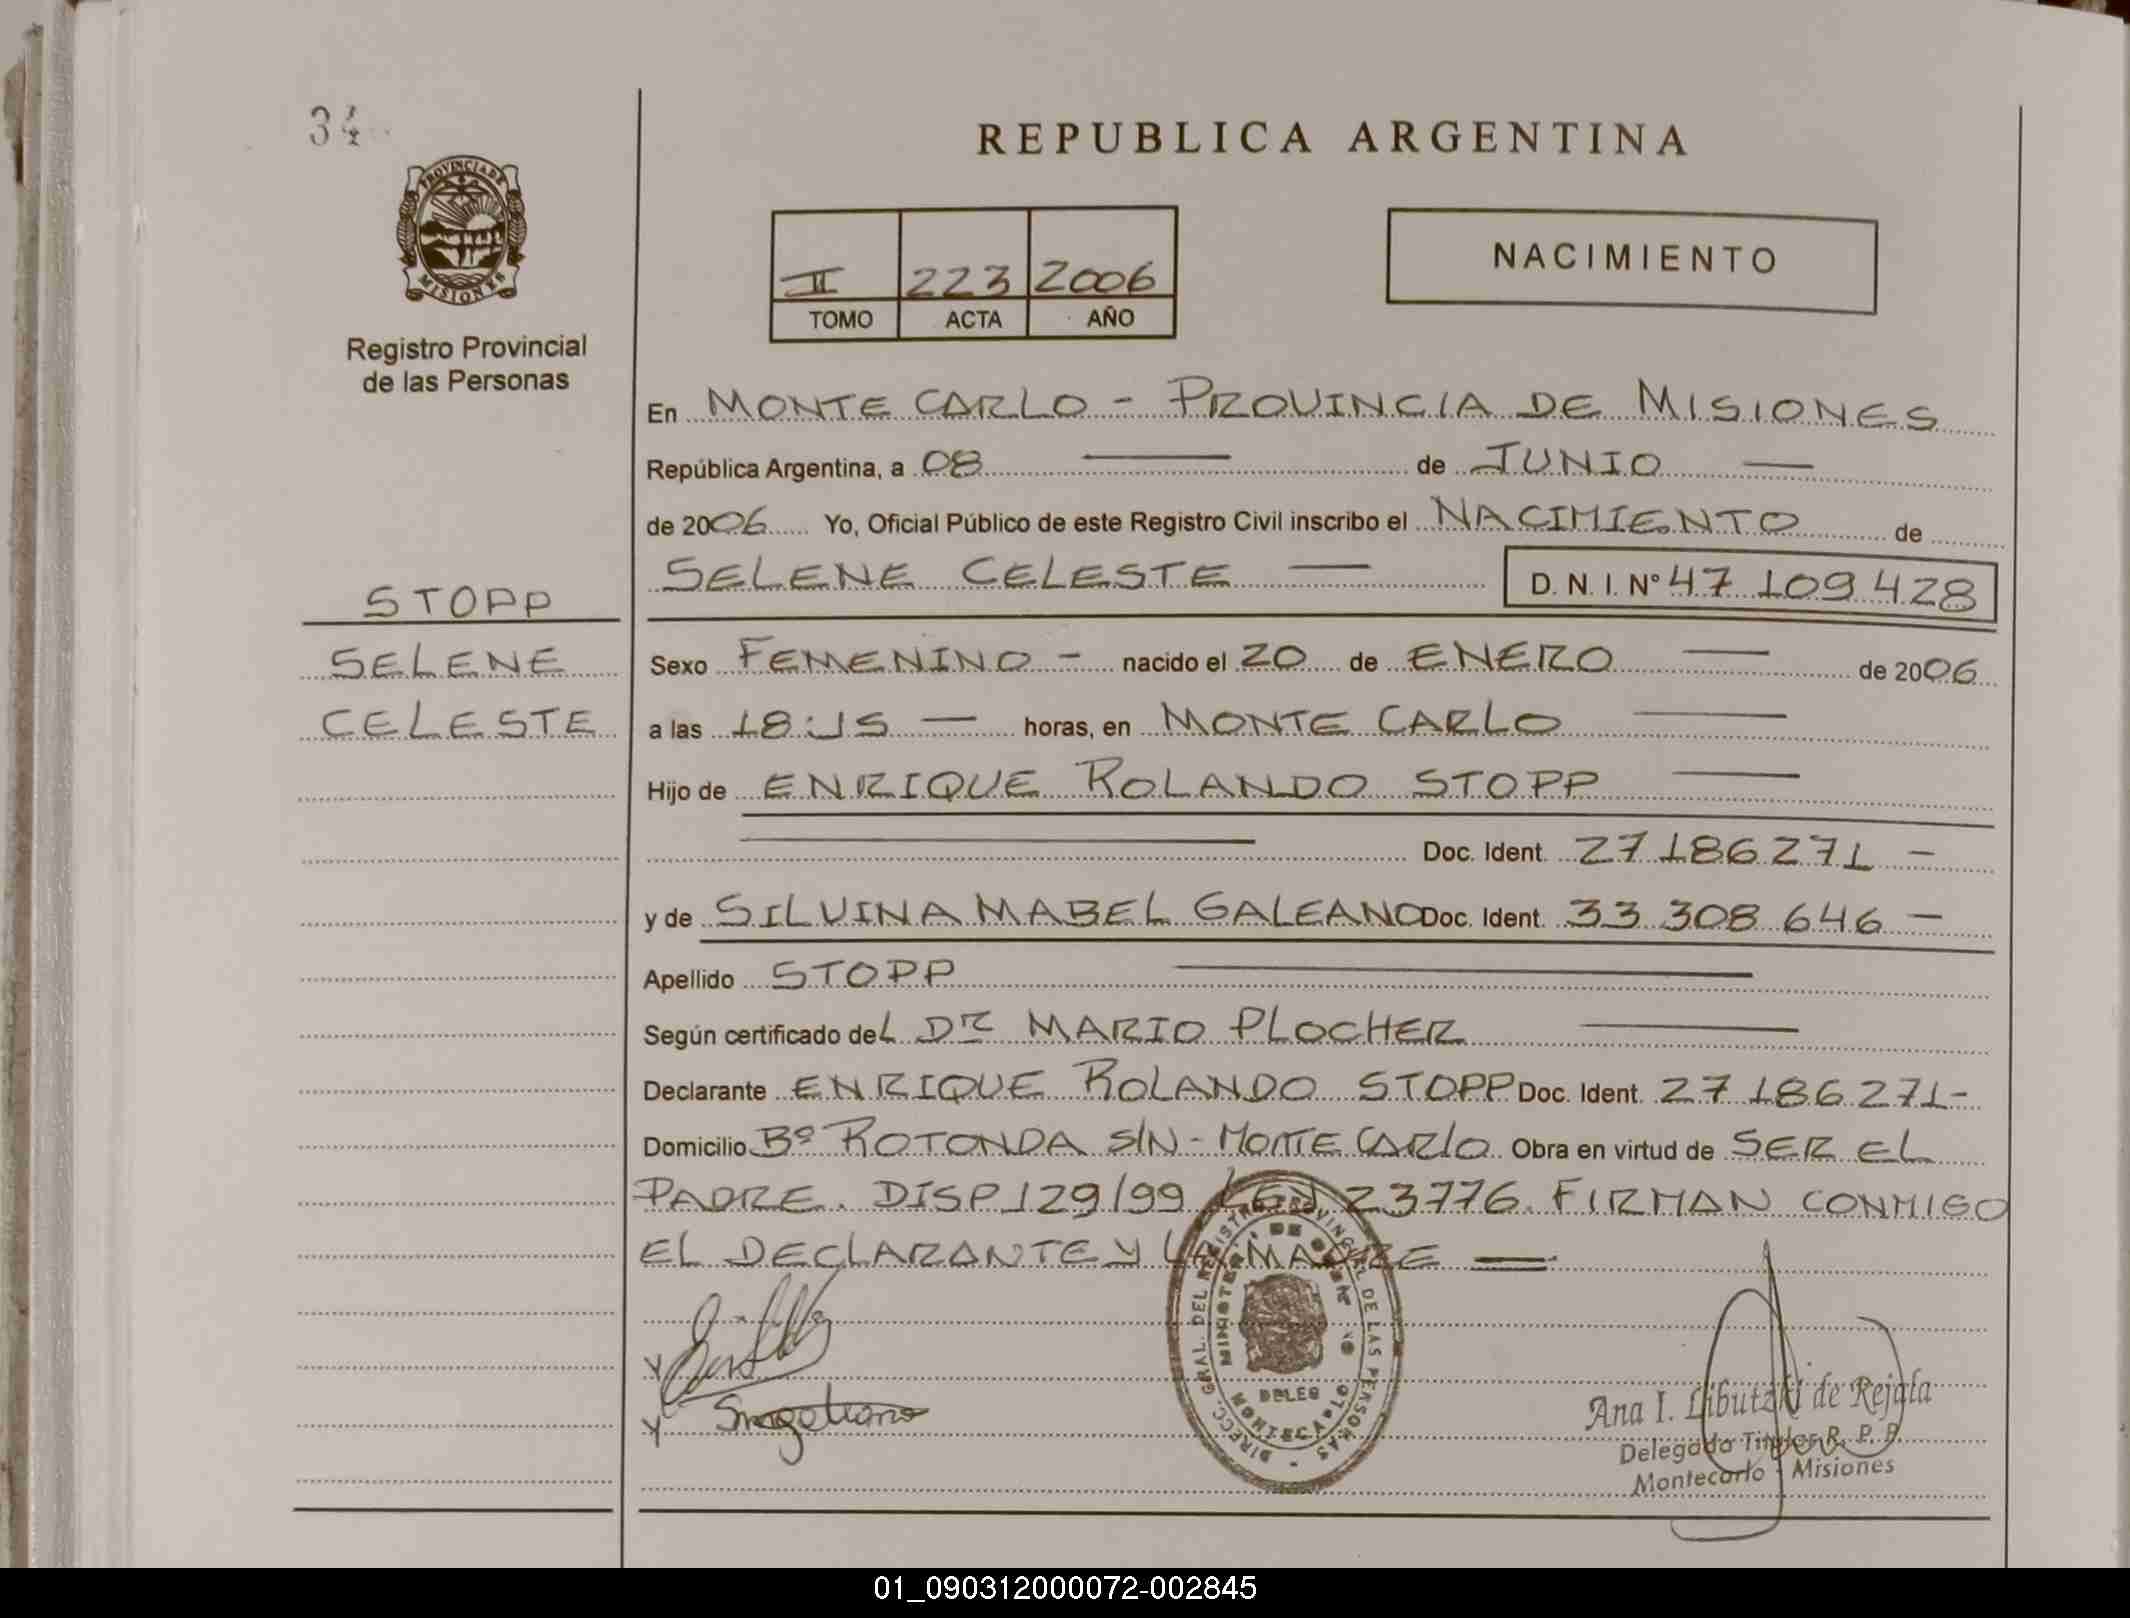 34
REPUBLICA ARGENTINA
PROVINCIA DE
MISIONES
Registro Provincial
de las Personas
II 223 2006
TOMO ACTA AÑO
NACIMIENTO
En MONTE CARLO - PROVINCIA DE MISIONES
República Argentina, a 08 de JUNIO
de 2006 Yo, Oficial Público de este Registro Civil inscribo el NACIMIENTO de
SELENE CELESTE D. N. I. Nº 47 109 428
STOPP
SELENE
CELESTE
Sexo FEMENINO - nacido el 20 de ENERO de 2006
a las 18:15 horas, en MONTE CARLO
Hijo de ENRIQUE ROLANDO STOPP
Doc. Ident. 27 186 271 -
y de SILVINA MABEL GALEANO Doc. Ident. 33 308 646 -
Apellido STOPP
Según certificado del Dr MARIO PLOCHER
Declarante ENRIQUE ROLANDO STOPP Doc. Ident. 27 186 271-
Domicilio Bº ROTONDA S/N - MONTE CARLO Obra en virtud de SER EL
PADRE. DISP 129/99 LEY 23776. FIRMAN CONMIGO
EL DECLARANTE Y LA MADRE
DIRECC. GRAL. DEL REGISTRO PROVINCIAL DE LAS PERSONAS
Ana I. Libutzki de Rejala
Delegada Titular R. P. P.
Montecarlo - Misiones
01_090312000072-002845